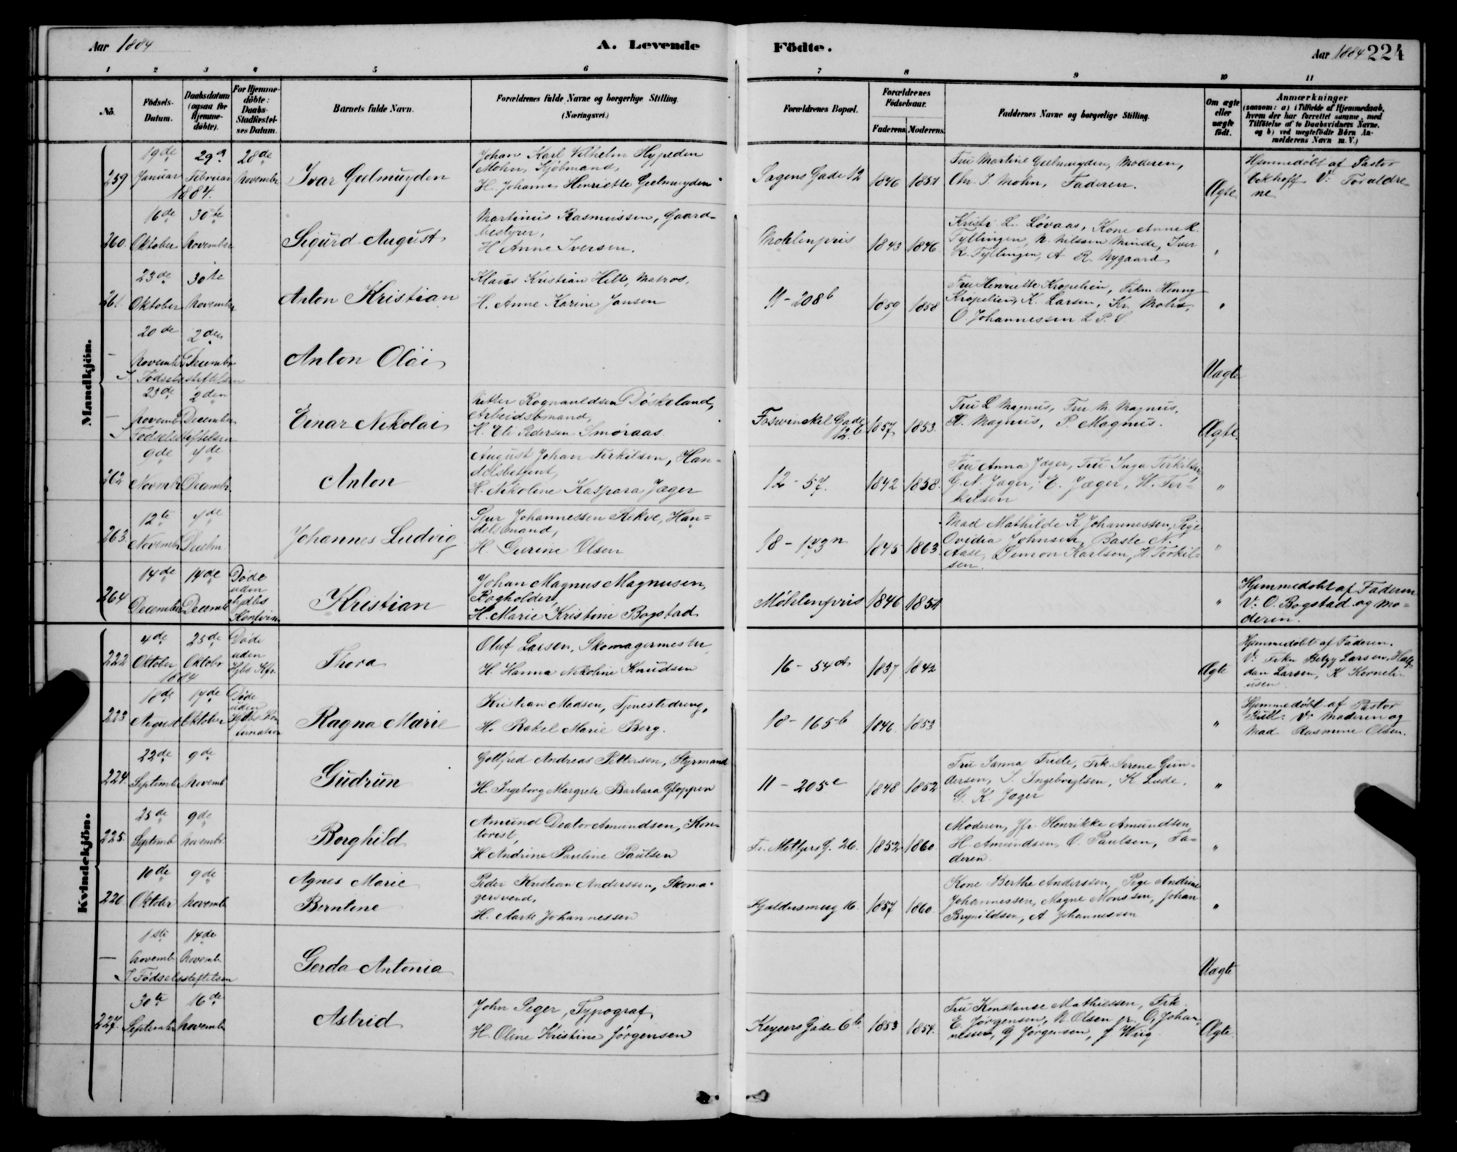 Aar 1884
A. Levende
Födte.
Aar 1884 224
1 2 3 4 5 6 7 8 9 10 11
No.
Födsels-
Datum.
Daabsdatum
(ogsaa for
Hjemme-
døbte).
For Hjemme-
døbte:
Daabs-
Stadfæstel-
ses Datum.
Barnets fulde Navn.
Forældrenes fulde Navne og borgerlige Stilling
(Næringsvei.)
Forældrenes Bopæl.
Forældrenes
Födselsaar.
Faderens. Moderens.
Faddernes Navne og borgerlige Stilling.
Om ægte
eller
uægte
født.
Anmærkninger
Mandkjön.
259
19de Januar
29de Februar
28de November
1884.
Ivar Geelmuyden
Johan Karl Vilhelm Hypeden
Mohn, Sjöbmand,
H. Johanne Henriette Geelmuyden
1846 1851
Fru Martine Geelmuyden, Moderen,
Chr. S Mohn, Faderen.
Ægte
Hjemmedöbt af Pastor
V. Foraldre-
ne
260
16de Oktober
30te November
Sigurd August
Martinus Rasmussen, Gaard-
bestyrer,
H. Anne Iversen.
Möhlenpris 1843 1846
Kristi L. Lövaas, Kone Anne K.
Tyllingen, N. Nilssen Minde, Iver
R. Tyllingen, A. R. Nygaard
261
23de Oktober
30te November
Anton Kristian
Klaus Kristian Hille, Matros,
H. Anne Karine Jansen
11 - 208b 1859 1858
Fru Henriette Kropelien, Frkn Henny
Kropelien, K. Larsen, Kr. Mohr,
O Johannessen
20de November
2den December
I Födselsstiftelsen
Anton Olai
Uægte
23de November
2den December
I Födselsstiftelsen
Einar Nikolai
Petter Rognvaldsen Döskeland,
Arbeidsmand,
H. Eli Pedersen Smöraas
1857 1853
Fru L Magnus, Fru M. Magnus,
H. Magnus, P. Magnus.
Ægte
262
9de Novembr
4de Decembr.
Anton
August Johan Terkilsen, Han-
delsbetjent,
H. Nikoline Kaspara Jæger
12 - 57. 1842 1858
Fru Anna Jæger, Fru Inga Terkilsen,
G. A. Jæger, E. Jæger, W. Ter-
kelsen
263
12te November
4de Decbr
Johannes Ludvig
Sjur Johannessen Rekve, Han-
delsmand,
H Gurine Olsen
18 - 143n 1845 1863
Mad Mathilde K Johannessen, Pige
Ovidia Johnsen, Baste N.
Aase, Simon Karlsen, H Torkil-
sen.
264
14de December
14de Decembr
Döde
uden
Kirkelig
Konfirm.
Kristian
Johan Magnus Magnusen,
Bogholder,
H. Marie Kristine Bogstad
Möhlenpris 1846 1850
Hjemmedöbt af Faderen
V. O. Bogstad og Mo-
deren.
Kvindekjön.
222
4de Oktober
25de Oktobr
1884
Döde
uden
Thora
Oluf Larsen, Skomagermester
H Hanna Nikoline Knudsen
16 - 54 1837 1842
Ægte
Hjemmedöbt af Faderen.
V. Frkn Betzy Larsen, Half-
dan Larsen, K Korneli-
usen.
223
18de August
14de Oktober
Döde
uden
Ragna Marie
Kristian Madsen, Tjenestedreng,
H. Rakel Marie Berg.
18 - 165b 1846 1853
Hjemmedöbt af Pastor
V. Moderen og
Mad Rasmine Olsen.
224
22de Septembr
9de Novemb
Gudrun
Gotfred Andreas Pettersen, Styrmand
H. Ingeborg Margrete Barbara Gloppen
11 - 205e 1848 1852
Fru Janna Friele, Frk. Serene Gun-
dersen, S. Ingebrigtsen, K Lude.
G. K Jæger
225.
25de Septemb.
9de Novembr
Borghild
Amund Deator Amundsen, Kon-
torist,
H Andrine Pauline Paulsen
Fr. Møltzers G. 26. 1852 1860
Moderen, Jfr Henrikke Amundsen
H Amundsen, O. Paulsen, Fa-
deren
226
10de Oktober
9de Novemb
Agnes Marie
Berntine
Peder Kristian Andersen, Skoma-
gersvend,
H. Marte Johannessen
1857 1860
Kone Berthe Anderssen, Pige Andrine
Johannessen, Magne Monssen, Johan
Brynildsen, A Johannessen
1ste Novemb
14de Novemb
I Födselsstiftelsen
Gerda Antonia
Uægte
227.
30te Septembr
16de Novemb
Astrid
John Peger, Typograf,
H. Oline Kristine Jörgensen
Keysers Gade 6b 1853 1854
Fru Konstanse Mathiessen, Frk
E. Jörgensen, N Olsen, O. Johan-
nessen, G Jörgensen, J Wiig
Ægte